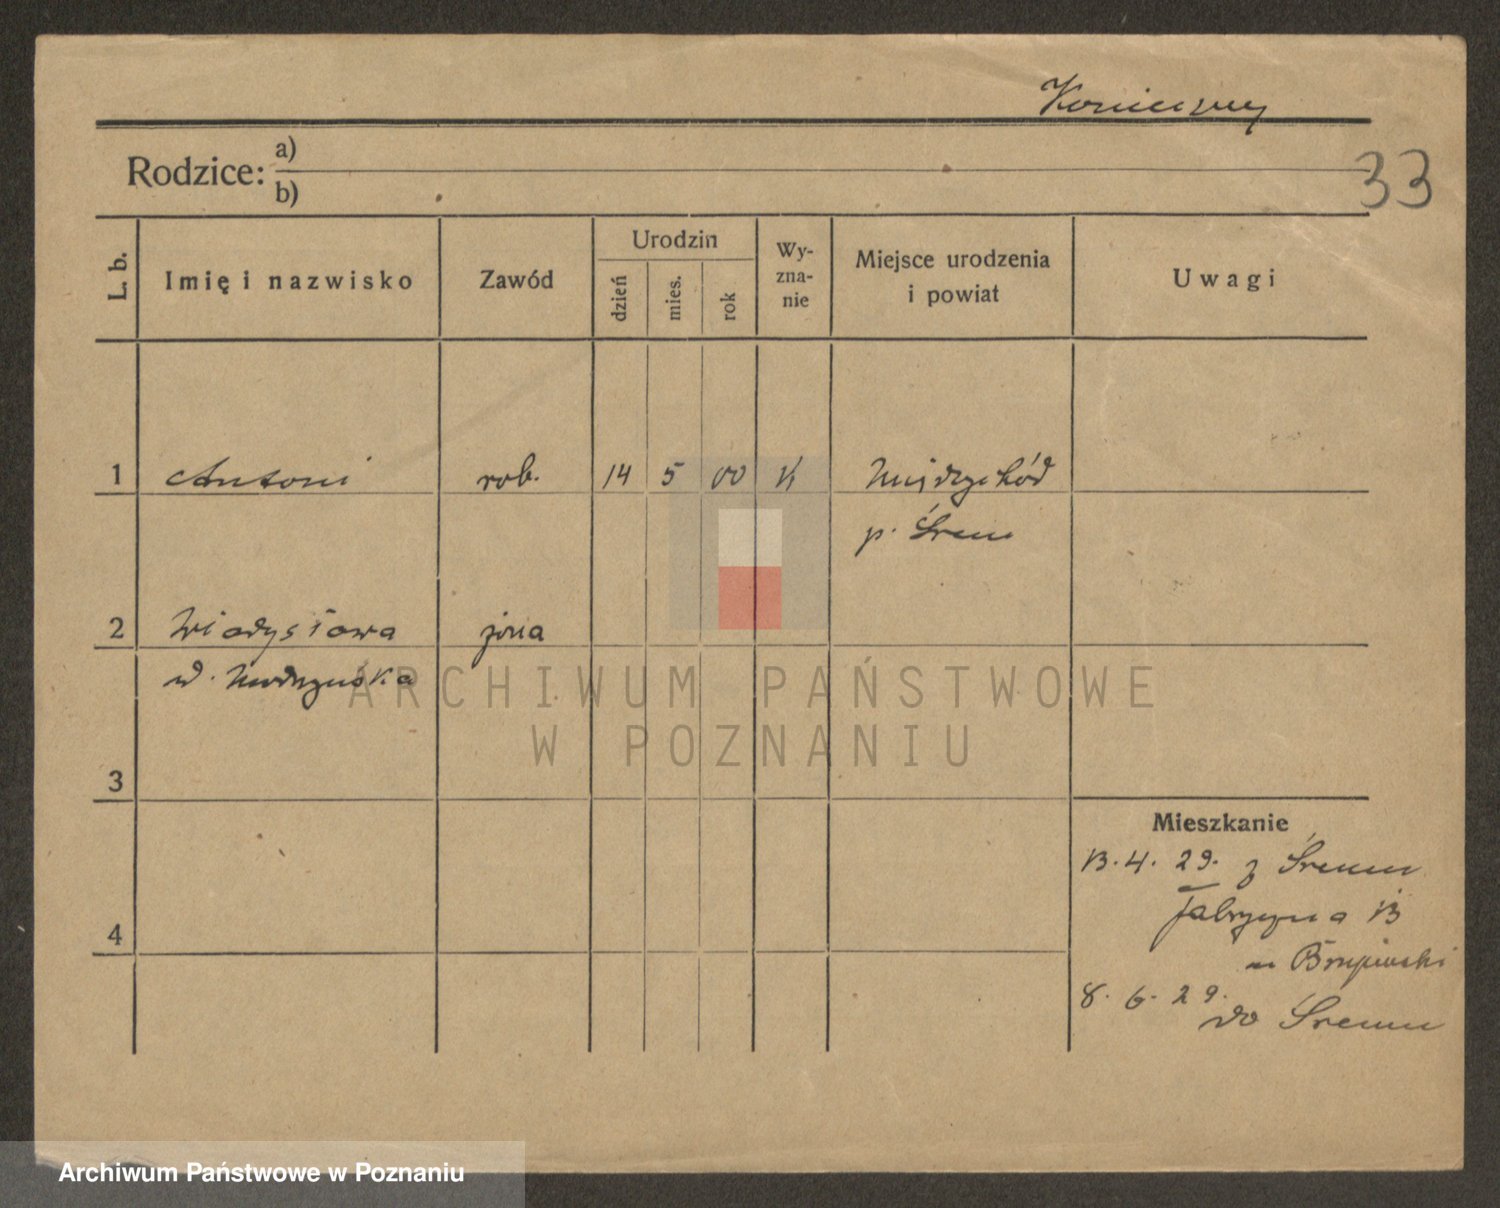 Konieczny
Rodzice: a)
b)
33
L. b.
Imię i nazwisko
Zawód
Urodzin
dzień
mies.
rok
Wy-
zna-
nie
Miejsce urodzenia
i powiat
Uwagi
1 Antoni rob. 14 5 00 K Międzychód
p. Śrem
2 Władysława żona
d.
3
4
Mieszkanie
13. 4. 29. z Śremu
Fabryczna 13
8. 6. 29.
do Śremu
ARCHIWUM PAŃSTWOWE
W POZNANIU
Archiwum Państwowe w Poznaniu